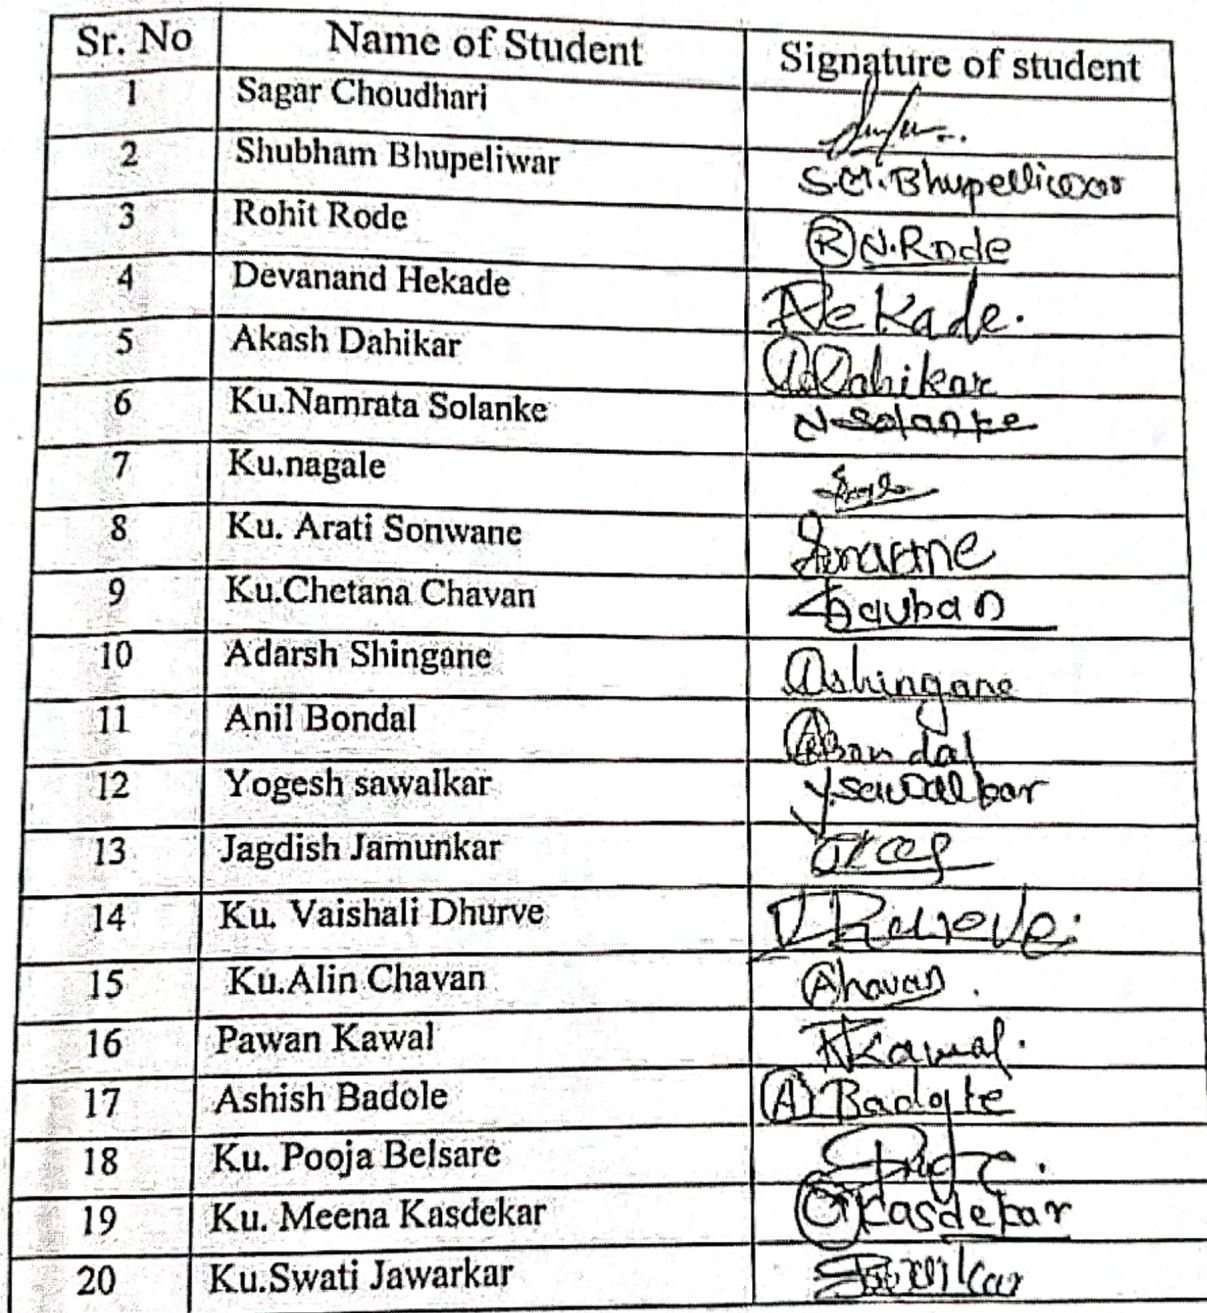 Sr. No Name of Student Signature of student
1 Sagar Choudhari
2 Shubham Bhupeliwar S.M.Bhupelliwar
3 Rohit Rode R N.Rode
4 Devanand Hekade Hekade.
5 Akash Dahikar A.Dahikar
6 Ku.Namrata Solanke N.Solanke
7 Ku.nagale
8 Ku. Arati Sonwane
9 Ku.Chetana Chavan
10 Adarsh Shingane Ashingane
11 Anil Bondal ABondal
12 Yogesh sawalkar Y.sawalkar
13 Jagdish Jamunkar
14 Ku. Vaishali Dhurve
15 Ku.Alin Chavan
16 Pawan Kawal PKawal.
17 Ashish Badole A
18 Ku. Pooja Belsare
19 Ku. Meena Kasdekar Kasdekar
20 Ku.Swati Jawarkar